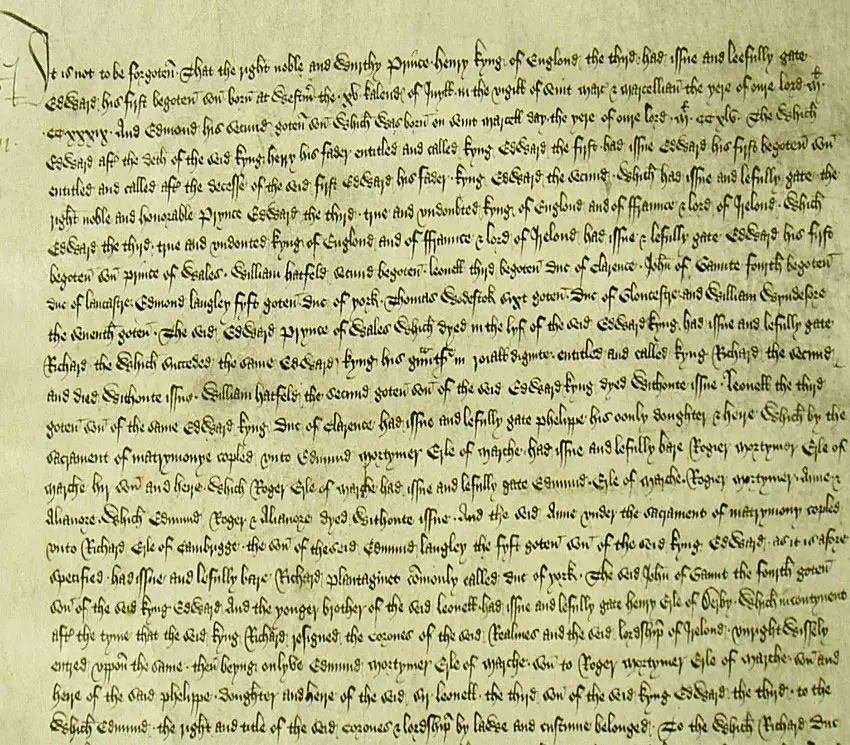 It is not to be forgoten· That the right noble and wurthy Prince· henry kyng· of Englond· the third· had· issue and leefully gate
Edward· his first begoten son born at Westm the· xv· kalend of Juyll· in the vigill of Seint marc & marcellian the yere of oure lord· Ml·
·CCxxxix· And Edmond his secund goten son which was born on seint marcell day· the yere of oure lord· Ml· CCxlv· The Which
Edward aft the deth of the seid kyng· herry his fader entitled and called kyng Edward the first· had issue Edward his first begoten son
entitled and called aft the decesse of the seid first Edward his fader· kyng Edward the secund· Which had issue and lefully gate the
right noble and honorable Prynce Edward the third· true and undouted kyng· of Englond and of ffraunce & lord of Irelond· Which
Edward the third· true and undouted kyng of Englond and of ffraunce & lord of Irelond had issue & lefully gate Edward his first
begoten son prince of Wales· William hatfeld secund begoten· leonell third begoten Duc of Clarence· John of Gaunte fourth begoten
duc of lancastre· Edmond langley fyft goten· Duc of york· Thomas Wodestok sixt goten· Duc of Gloucestre· and William Wyndesore
the seventh goten· The seid Edward Prynce of Wales Which dyed in the lyf of the seid Edward kyng· had issue and lefully gate
Richard the Which succeded the same Edward· kyng· his in roiall dignite· entitled and called kyng Richard the secund
and died Withoute issue· William hatfeld the secund goten son of the seid Edward kyng dyed Withoute issue· Leonell the third
goten son of the same Edward kyng· Duc of Clarence had issue and lefully gate phelippe his oonly doughter & heire Which by the
sacrament of matrymonye copled unto Edmund mortymer Erle of marche· had issue and lefully bare Rogier mortymer Erle of
marche hir son and heire· Which Roger Erle of marche had issue and lefully gate Edmund· Erle of marche· Rogier mortymer· Anne &
Alianore· Which Edmund Roger & Alianore dyed Withoute issue· And the seid Anne under the sacrament of matrymony copled
unto Richard Erle of Cambrigge· the son of the seid Edmund langley the fyft goten son of the seid kyng Edward· as it is afore
specified· had issue and lefully bare Richard plantaginet comonly called duc of york· The seid John of Gaunt the fourth goten
son of the seid kyng Edward· And the yonger brother of the seid leonell· had issue and lefully gate henry Erle of Derby· Which incontynent
aft the tyme that the seid kyng Richard resigned the corones of the seid Realmes and the seid lordship of Irelond· unrightwissely
entred uppon the same· then beyng onlyve Edmund mortymer Erle of marche· son to Roger mortymer Erle of marche· son and
heire of the said phelippe· doughter and heire of the seid· sir leonell· the third son of the seid kyng Edward the third· to the
Which Edmund· the right and title of the seid corones & lordship by lawe and custume belonged· To the Which Richard Duc